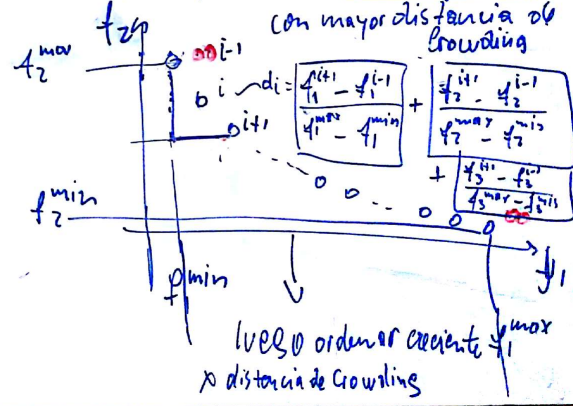 con mayor distancia de
Crowding
f₂
f₂^max
∞ i-1
i ~ di = (f₁^{i+1} - f₁^{i-1}) / (f₁^max - f₁^min) + (f₂^{i+1} - f₂^{i-1}) / (f₂^max - f₂^min)
i+1
+ (f₃^{i+1} - f₃^{i-1}) / (f₃^max - f₃^min)
∞
f₂^min
f₁
f^min
f₁^max
luego ordenar creciente
x distancia de Crowding